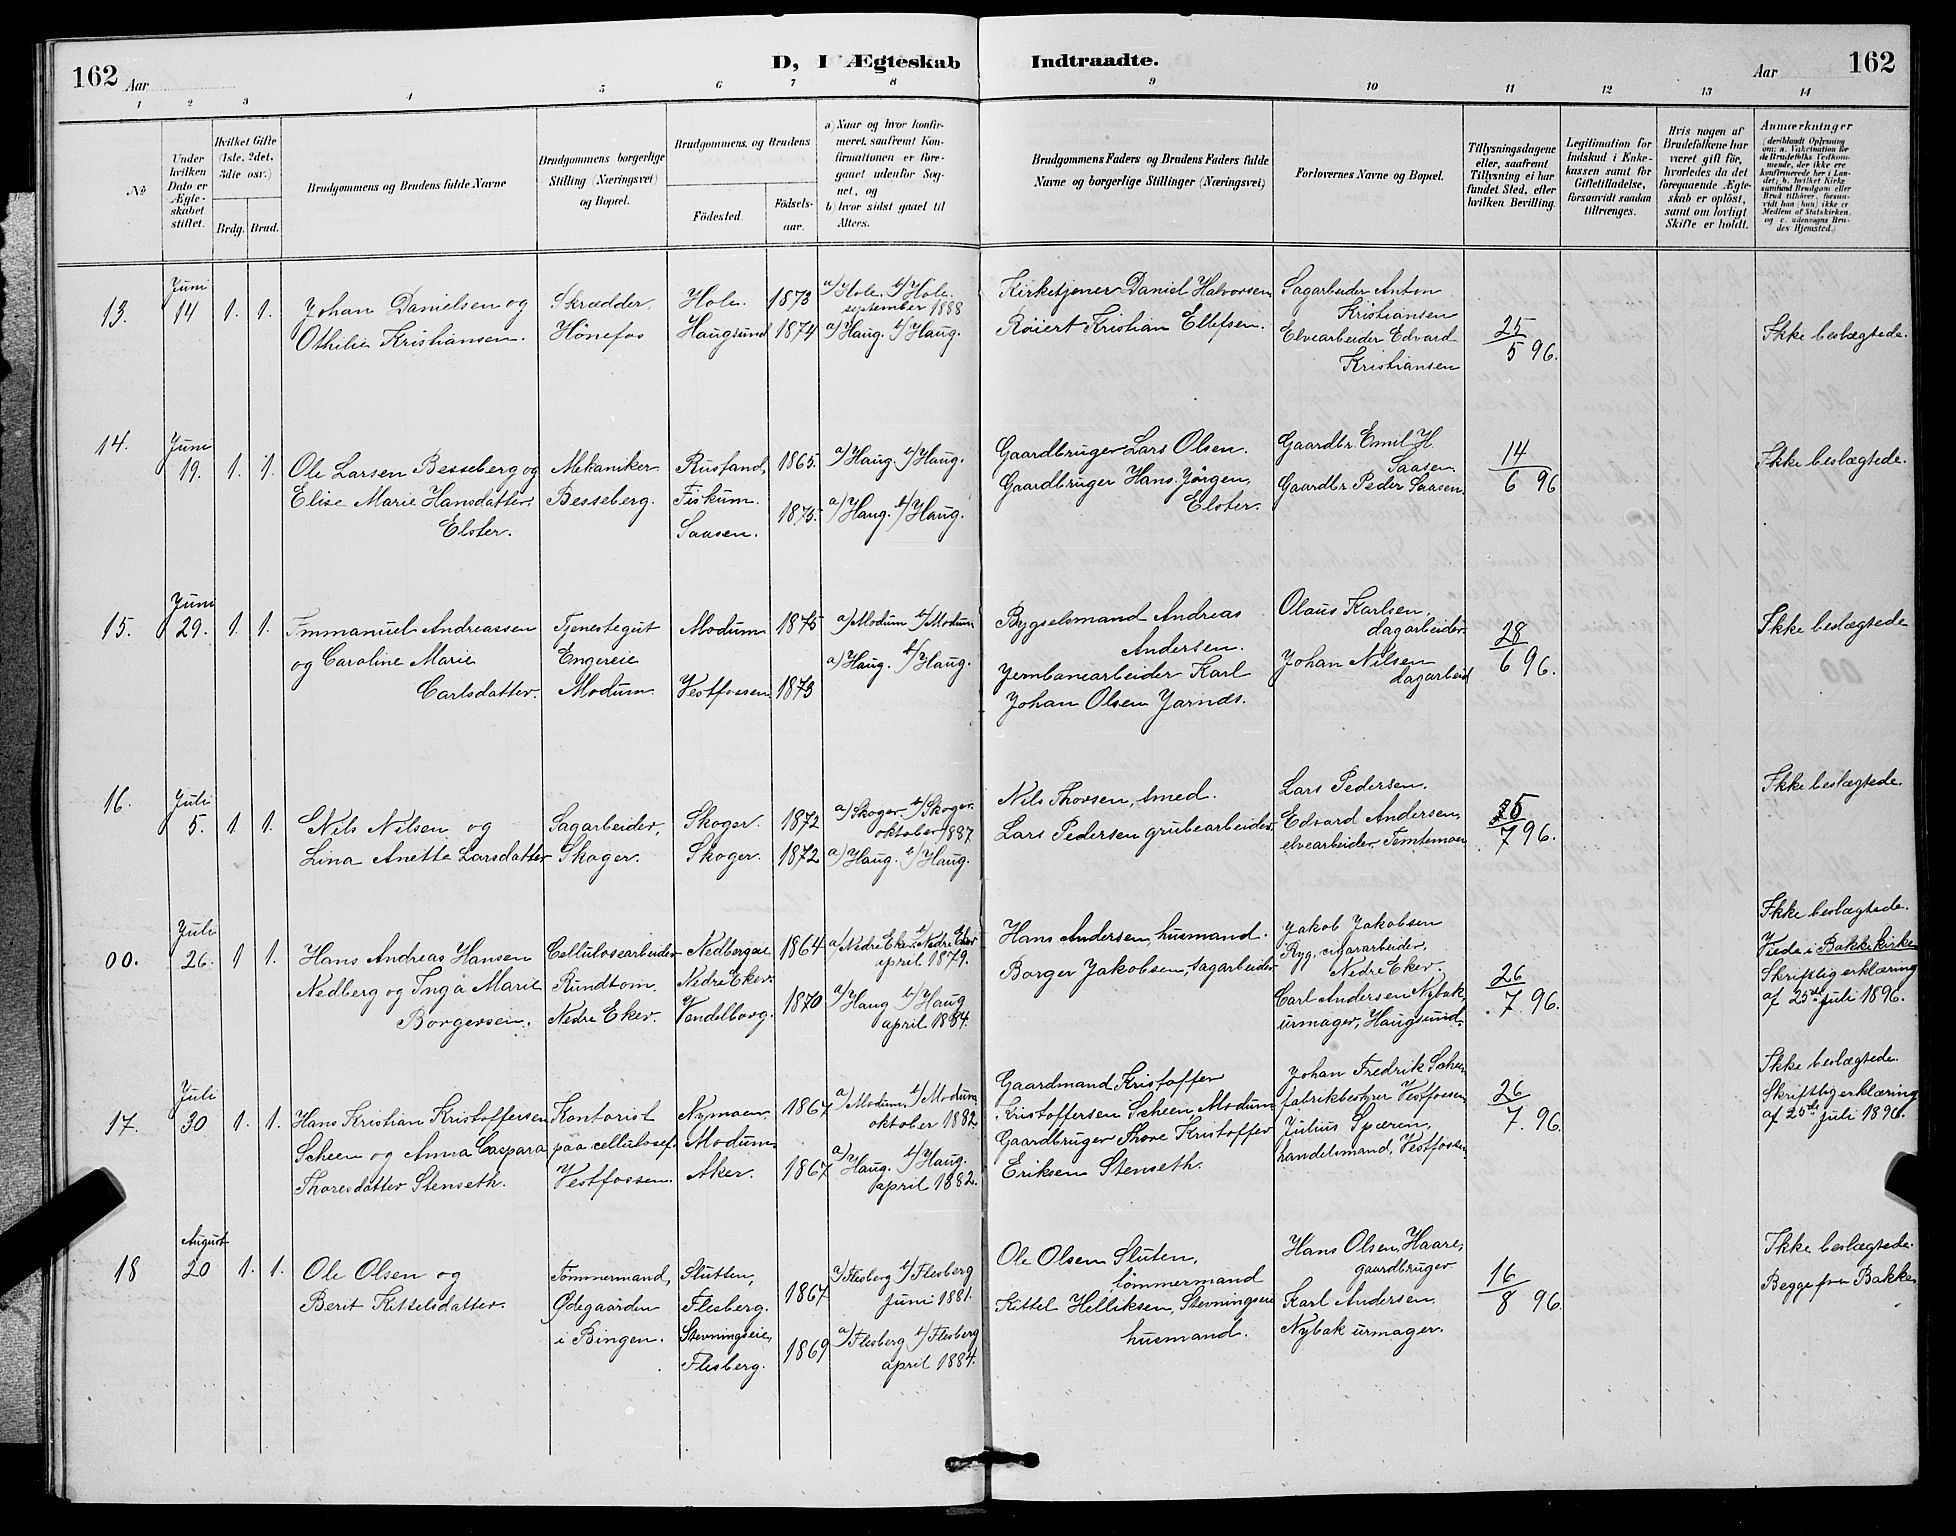 162
Aar
D, I Ægteskab Indtraadte.
Aar
162
1 2 3 4 5 6 7 8 9 10 11 12 13 14
No
Under hvilken Dato er Ægteskabet stiftet.
Hvilket Gifte (1ste, 2det, 3die osv.)
Brdg. Brud.
Brudgommens og Brudens fulde Navne
Brudgommens borgerlige Stilling (Næringsvei) og Bopæl.
Brudgommens og Brudens
Fødested.
Fødselsaar.
a) Naar og hvor konfirmeret, saafremt Konfirmationen er foregaaet udenfor Sognet, og
b) hvor sidst gaaet til Alters.
Brudgommens Faders og Brudens Faders fulde Navne og borgerlige Stillinger (Næringsvei)
Forlovernes Navne og Bopæl.
Tillysningsdagene eller, saafremt Tillysning ei har fundet Sted, efter hvilken Bevilling.
Legitimation for Indskud i Enkekassen samt for Giftetilladelse, forsaavidt saadan tiltrænges.
Hvis nogen af Brudefolkene har været gift før, hvorledes da det foregaaende Ægteskab er opløst, samt om lovligt Skifte er holdt.
Anmærkninger (deriblandt Oplysning om: a. Vakcination for de Brudefolks Vedkommende, der ikke ere konfirmerede her i Landet; b. hvilket Kirkesamfund Brudgom eller Brud tilhører, forsaavidt han (hun) ikke er Medlem af Statskirken, og c. udensogns Brudes Hjemsted.)
13.
Juni
14
1. 1.
Johan Danielsen og
Othilie Kristiansen.
Skrædder,
Hönefos
Hole.
Haugsund
1873
1874
a) Hole. b) Hole.
september 1888
a) Haug. b) Haug.
Kirketjener Daniel Halvorsen
Röiert Kristian Ellefsen.
Sagarbeider Anton
Kristiansen
Elvearbeider Edvard
Kristiansen
25
5 96.
Ikke beslægtede.
14.
Juni
19.
1. 1.
Ole Larsen Besseberg og
Elise Marie Hansdatter
Elster.
Mekaniker
Besseberg.
Rusfand,
Fiskum.
Saasen.
1865.
1875.
a) Haug. b) Haug.
a) Haug. b) Haug.
Gaardbruger Lars Olsen.
Gaardbruger Hans Jörgen
Elster.
Gaardbr. Emil H.
Saasen
Gaardbr Peder Saasen
14
6 96
Ikke beslægtede.
15.
Juni
29.
1. 1.
Immanuel Andreassen
og Caroline Marie
Carlsdatter.
Tjenestegut
Engereie
Modum
Modum
Vestfossen
1875
1873
a) Modum b) Modum
a) Haug. b) Haug.
Bygselsmand Andreas
Andersen.
Jernbanearbeider Karl
Johan Olsen Jarnds.
Olaus Karlsen,
dagarbeider
Johan Nilsen
dagarbeid
28
6 96.
Ikke beslægtede
16.
Juli
5.
1. 1.
Nils Nilsen og
Lina Anette Larsdatter
Sagarbeider,
Skoger.
Skoger.
Skoger.
1872
1872
a) Skoger b) Skoger.
oktober 1887
a) Haug. b) Haug.
Nils Thorsen, smed.
Lars Pedersen grubearbeider
Lars Pedersen.
Edvard Andersen
elvearbeider Temtemoen
5
7 96.
Ikke beslægtede
00.
Juli
26.
1 1
Hans Andreas Hansen
Nedberg og Inga Marie
Borgersen.
Cellulosearbeider
Rundtom.
Nedre Eker.
Nedbergeie
Nedre Eker.
Vendelborg.
1864
1870
a) Nedre Eker. b) Nedre Eker
april 1879.
a) Haug b) Haug
april 1884.
Hans Andersen, husmand.
Borger Jakobsen, sagarbeider
Jakob Jakobsen
Ryg, cigararbeider,
Nedre Eker.
Carl Andersen Nybak,
urmager, Haugsund.
26
7. 96.
Ikke beslægtede.
Viede i Bakke kirke
Skriftlig erklæring
af 25de juli 1896.
17.
Juli
30
1. 1.
Hans Kristian Kristoffersen
Scheen og Anna Caspara
Thoresdatter Stenseth.
Kontorist
paa cellulosef.
Vestfossen.
Nymoen
Modum
Aker.
1867
1867
a) Modum. b) Modum
oktober 1882
a) Haug. b) Haug.
april 1882.
Gaardmand Kristoffer
Kristoffersen Scheen, Modum
Gaardbruger Thore Kristoffer
Eriksen Stenseth.
Johan Fredrik Scheen
fabrikbestyrer Vestfossen
Julius Spæren,
handelsmand, Vestfossen
26
7. 96.
Ikke beslægtede.
Skriftlig erklæring
af 25de juli 1896.
18
August
20
1. 1.
Ole Olsen og
Berit Kittelsdatter.
Tömmermand,
Ödegaarden
i Bingen.
Slutten,
Flesberg.
Stevningseie,
Flesberg.
1867
1869
a) Flesberg b) Flesberg
Juni 1881.
a) Flesberg b) Flesberg
april 1884.
Ole Olsen Sluten,
tömmermand
Kittel Helliksen, Stevningseie
husmand.
Hans Olsen, Haare,
gaardbruger
Karl Andersen
Nybak urmager.
16
8 96.
Ikke beslægtede.
Begge fra Bakke